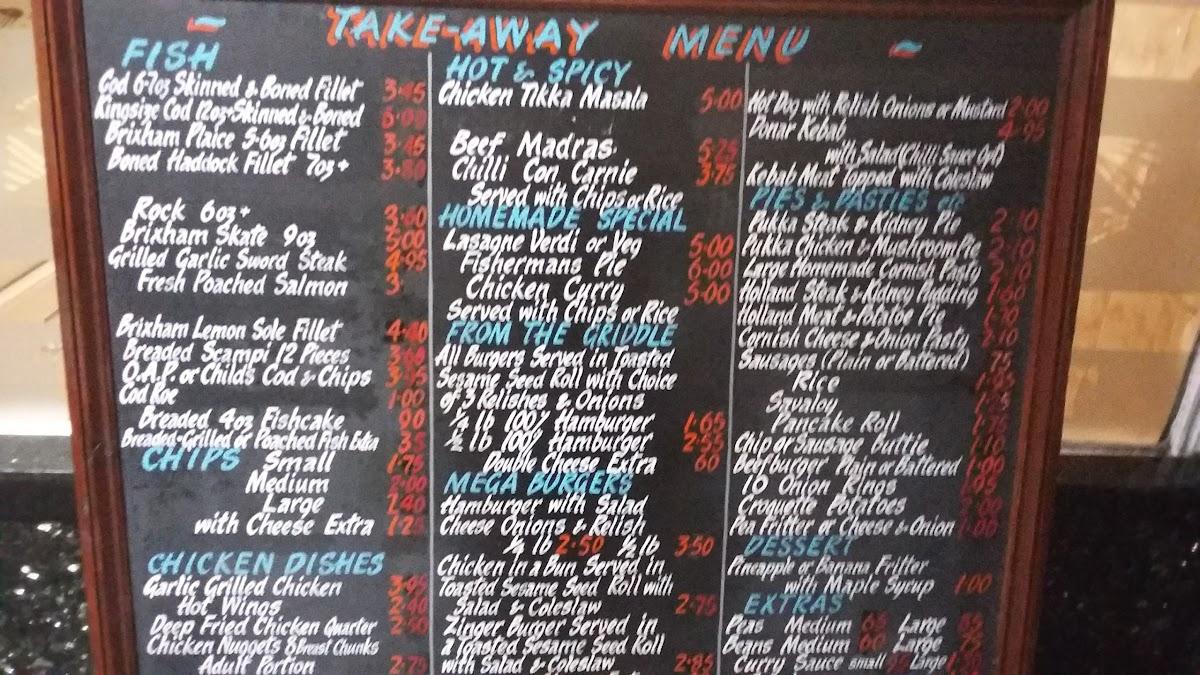 TAKE-AWAY MENU
FISH
Cod 6-7oz Skinned & Boned Fillet 3·45
Kingsize Cod 12oz+ Skinned & Boned 6·00
Brixham Plaice 5-6oz Fillet 3·45
Boned Haddock Fillet 7oz+ 3·80
Rock 6oz+ 3·60
Brixham Skate 9oz 5·00
Grilled Garlic Sword Steak 4·95
Fresh Poached Salmon 3·
Brixham Lemon Sole Fillet 4·40
Breaded Scampi 12 Pieces
O.A.P. or Childs Cod & Chips
Cod Roe 1·00
Breaded 4oz Fishcake 90
Breaded-Grilled or Poached Fish Extra 35
CHIPS Small 1·75
Medium 2·00
Large 2·40
with Cheese Extra
CHICKEN DISHES
Garlic Grilled Chicken 3·95
Hot Wings 2·40
Deep Fried Chicken Quarter 2·50
Chicken Nuggets 8 Breast Chunks
Adult Portion 2·75
HOT & SPICY
Chicken Tikka Masala 5·00
Beef Madras 5·25
Chilli Con Carnie 3·75
Served with Chips or Rice
HOMEMADE SPECIAL
Lasagne Verdi or Veg 5·00
Fishermans Pie 6·00
Chicken Curry 5·00
Served with Chips or Rice
FROM THE GRIDDLE
All Burgers Served in Toasted
Sesame Seed Roll with Choice
of 3 Relishes & Onions
¼ lb 100% Hamburger 1·65
½ lb 100% Hamburger 2·55
Double Cheese Extra 60
MEGA BURGERS
Hamburger with Salad
Cheese Onions & Relish
¼ lb 2·50 ½ lb 3·50
Chicken in a Bun Served in
Toasted Sesame Seed Roll with
Salad & Coleslaw 2·75
Zinger Burger Served in
a Toasted Sesame Seed Roll
with Salad & Coleslaw 2·85
Hot Dog with Relish Onions or Mustard 2·00
Donar Kebab 4·95
with Salad (Chilli Sauce Opt)
Kebab Meat Topped with Coleslaw
PIES & PASTIES etc
Pukka Steak & Kidney Pie 2·10
Pukka Chicken & Mushroom Pie 2·10
Large Homemade Cornish Pasty
Holland Steak & Kidney Pudding 1·60
Holland Meat & Potatoe Pie
Cornish Cheese & Onion Pasty
Sausages (Plain or Battered) 75
Rice
Saveloy
Pancake Roll
Chip or Sausage Buttie
Beefburger Plain or Battered
10 Onion Rings
Croquette Potatoes
Pea Fritter or Cheese & Onion
DESSERT
Pineapple or Banana Fritter
with Maple Syrup 1·00
EXTRAS
Peas Medium Large
Beans Medium Large
Curry Sauce small Large